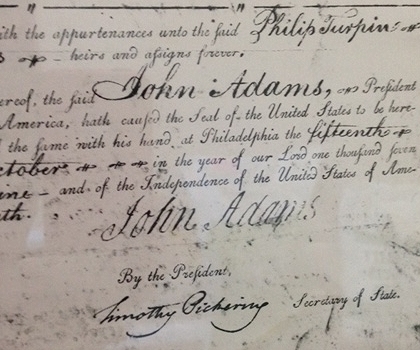 ith the appurtenances unto the said Philip Turpin
heirs and assigns forever.
ereof, the said John Adams, President
America, hath caused the Seal of the United States to be here-
the same with his hand, at Philadelphia the fifteenth
ctober in the year of our Lord one thousand seven
ine and of the Independence of the United States of Ame-
th.
John Adams
By the President,
Timothy Pickering Secretary of State.